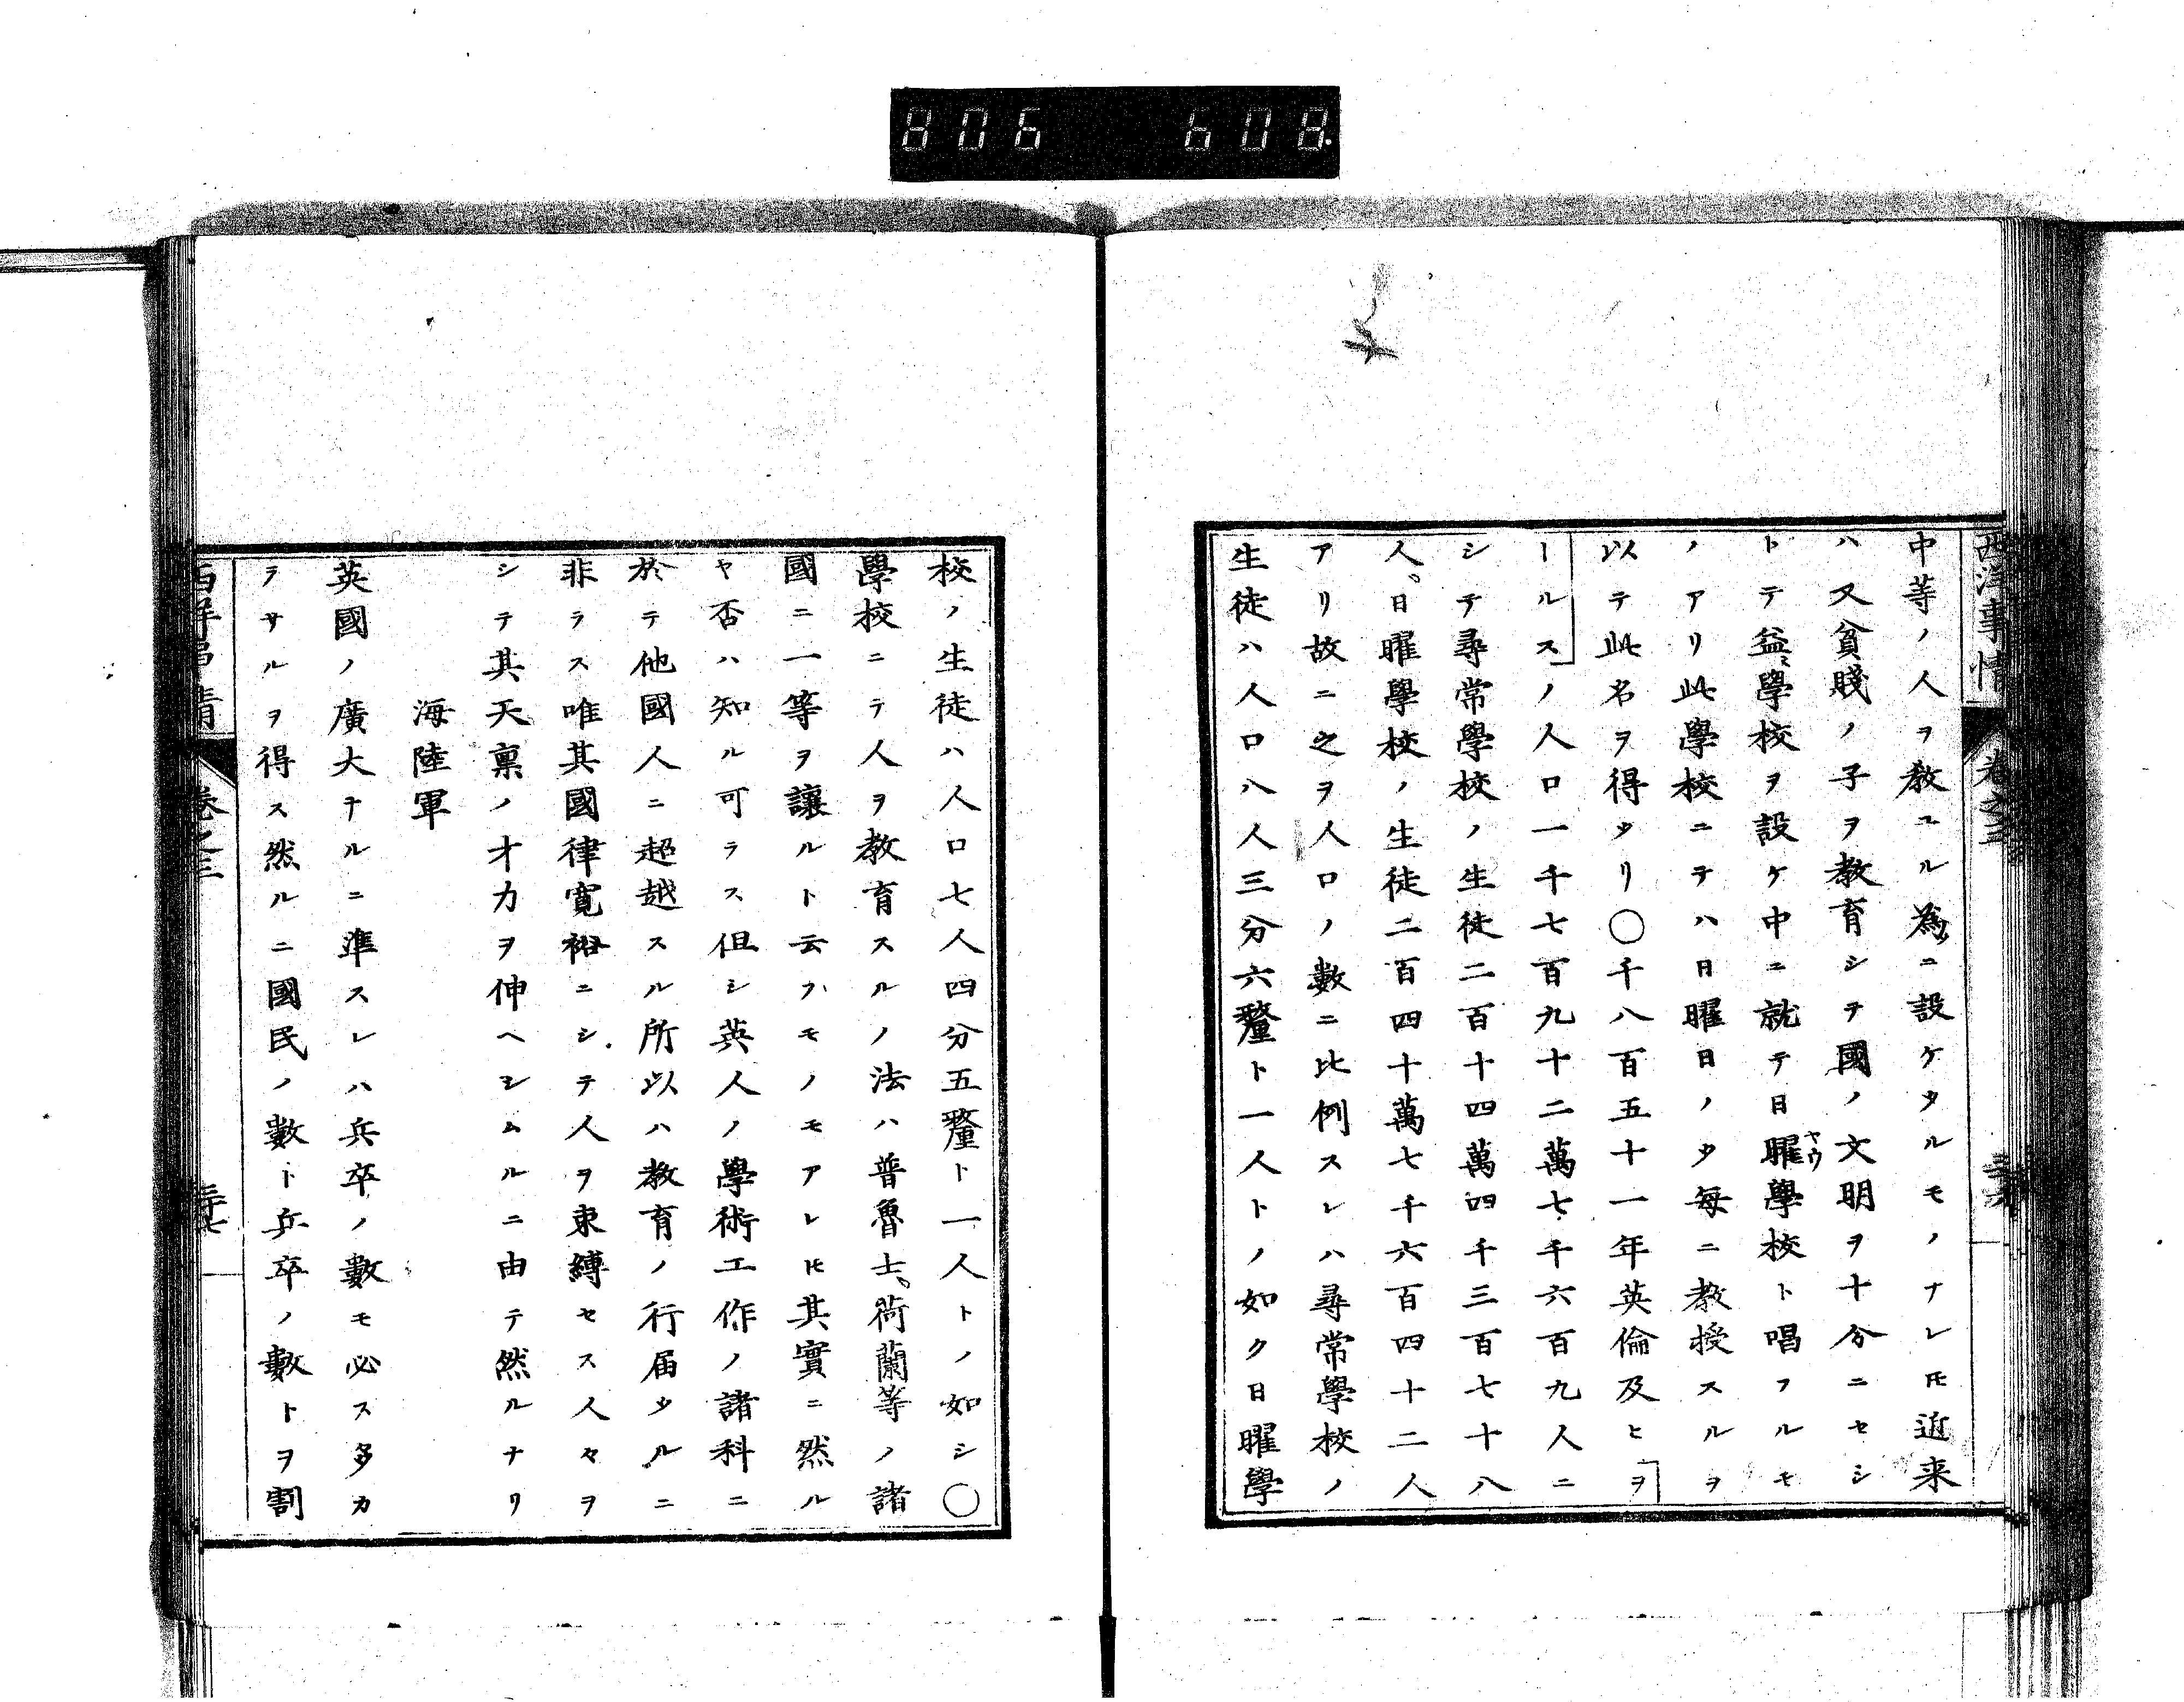 806 608
西洋事情 卷之三
中等ノ人ヲ敎ユル為ニ設ケタルモノナレ𪜈近来
ハ又貧賤ノ子ヲ教育シテ國ノ文明ヲ十分ニセシ
トテ益〻學校ヲ設ケ中ニ就テ日曜學校ト唱フルモ
ヤウ
ノアリ此學校ニテハ日曜日ノタ毎ニ教授スルヲ
以テ此名ヲ得タリ〇千八百五十一年英倫及ヒヲ
ールスノ人口一千七百九十二萬七千六百九人ニ
シテ尋常學校ノ生徒二百十四萬四千三百七十八
人。日曜學校ノ生徒二百四十萬七千六百四十二人
アリ故ニ之ヲ人口ノ數ニ比例スレハ尋常學校ノ
生徒ハ人口八人三分六釐ト一人トノ如ク日曜學
校ノ生徒ハ人口七人四分五釐ト一人トノ如シ〇
學校ニテ人ヲ教育スルノ法ハ普魯士。荷蘭等ノ諸
國ニ一等ヲ讓ルト云フモノモアレ𪜈其實ニ然ル
ヤ否ハ知ル可ラス但シ英人ノ學術工作ノ諸科ニ
於テ他國人ニ超越スル所以ハ教育ノ行届タルニ
非ラス唯其國律寛裕ニシテ人ヲ束縛セス人々ヲ
シテ其天禀ノオカヲ伸ヘシムルニ由テ然ルナリ
海陸軍
英國ノ廣大ナルニ準スレハ兵卒ノ數モ必ス多カ
ラサルヲ得ス然ルニ國民ノ數ト兵卒ノ數トヲ割
西洋事情 卷之三 二十七